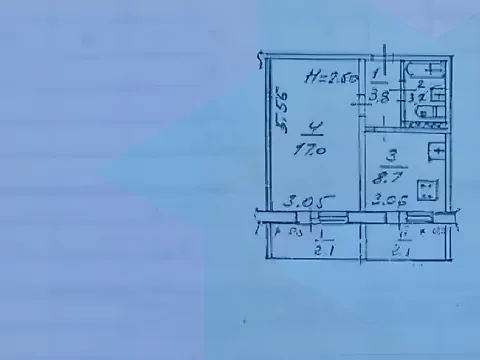 H=2.50
1
3.8
2
3.2
5.56
4
17.0
3
8.7
3.05
3.06
2.1
2.1